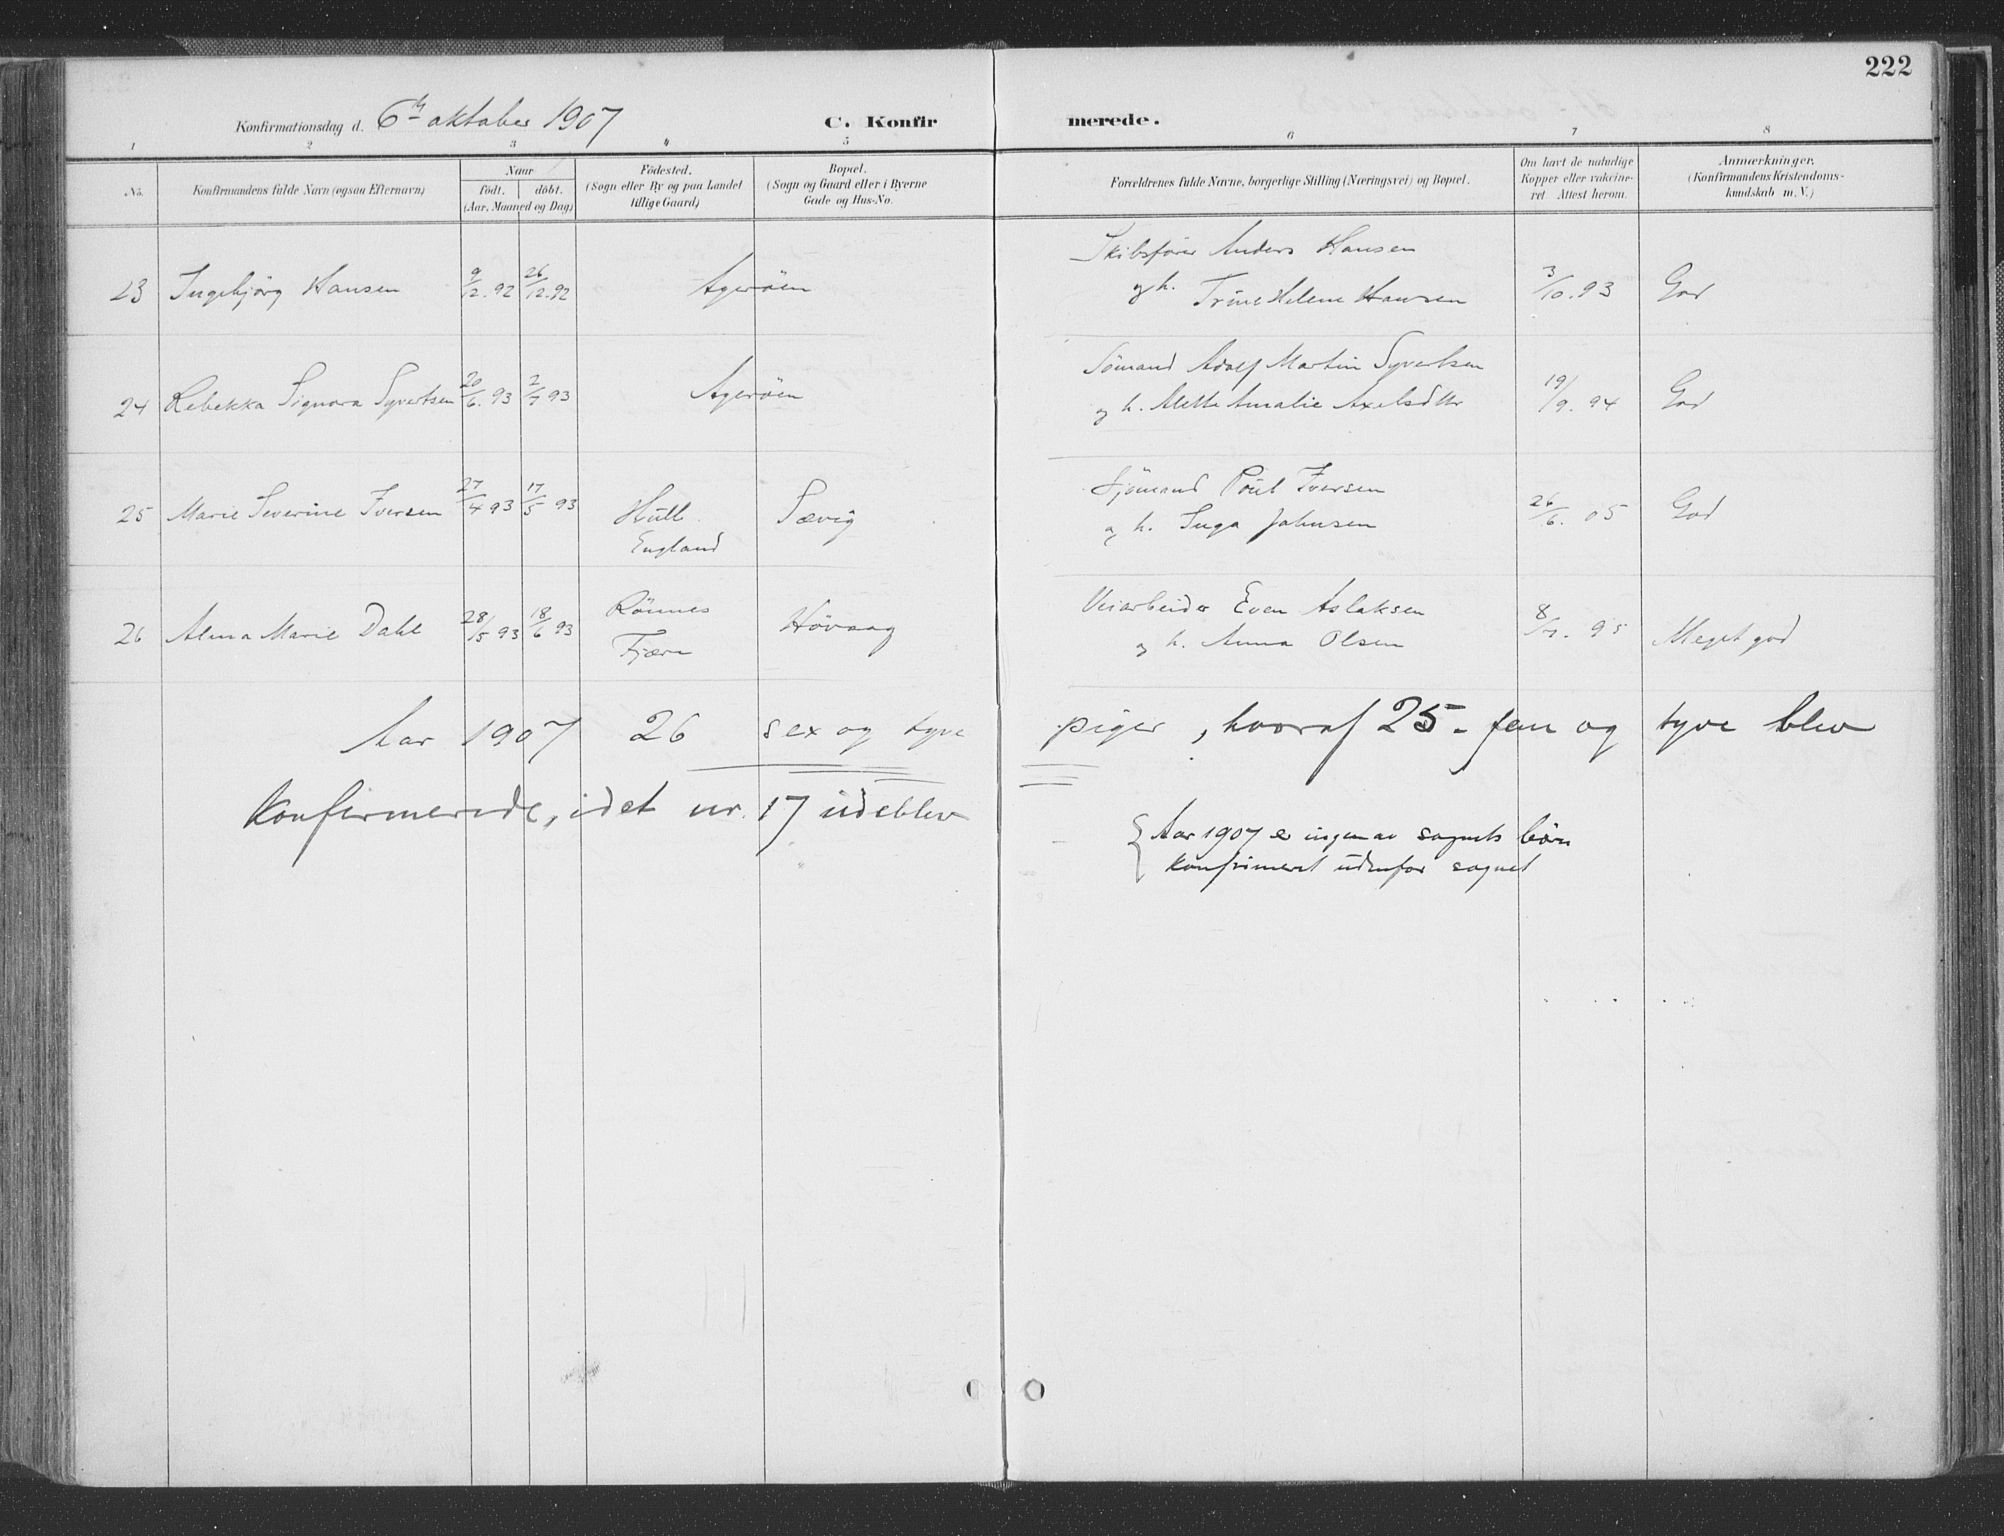 222
Konfirmationsdag d. 6te oktober 1907 C. Konfirmerede.
1 2 3 4 5 6 7 8
No. Konfirmandens fulde Navn (ogsaa Efternavn) Naar født. døbt. (Aar, Maaned og Dag) Födested. (Sogn eller By og paa Landet tillige Gaard) Bopæl. (Sogn og Gaard eller i Byerne Gade og Hus-No. Forældrenes fulde Navne, borgerlige Stilling (Næringsvei) og Bopæl. Om havt de naturlige Kopper eller vakcineret Attest herom. Anmærkninger. (Konfirmandens Kristendomskundskab m. V.)
23 Ingebjörg Hansen 9/12.92 26/12.92 Ageröen Skibsfører Anders Hansen
og h. Trine Helene Hansen 3/10.93 God
24 Rebekka Signora Syvertsen 20/6.93 2/7 93 Ageröen Sömand Adolf Martin Syvertsen
og h. Mette Amalie Axelsdttr 19/9.94 God
25 Marie Severine Iversen 27/4 93 17/5 93 Hull England Sævig Sjömand Poul Iversen
og h. Inga Johnsen 26/6.05 God
26 Alma Marie Dahl 28/5 93 18/6 93 Rönnes Fjære Hövaag Veiarbeider Even Aslaksen
og h. Anna Olsen 8/7.95 Meget god
Aar 1907 26 sex og tyve piger, hvoraf 25 - fem og tyve blev
Konfirmerede, idet nr. 17 udeblev
Aar 1907 er ingen av sognets börn
konfirmeret udenfor sognet